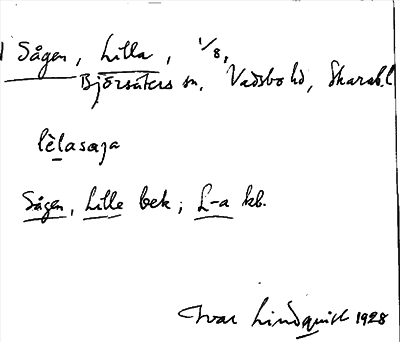 Sågen, Lilla, 1/8,
Björsäters sn, Vadsbo hd, Skarab. l
lèlasaga
Sågen, Lille bek; L-a kb.
Ivar Lindquist 1928